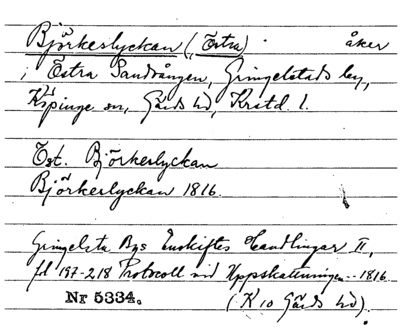 Björkerlyckan (, Östra) åker
i Östra Sandvången, Gringelstads by,
Köpinge sn, Gärds hd, Kristd. l.
Öst. Björkerlyckan
Björkerlyckan 1816.
Gringelsta Bys Enskiftes Handlingar II,
fl 197-218 Protocoll vid Uppskattningen -- 1816
Nr 5334. (K 10 Gärds hd).